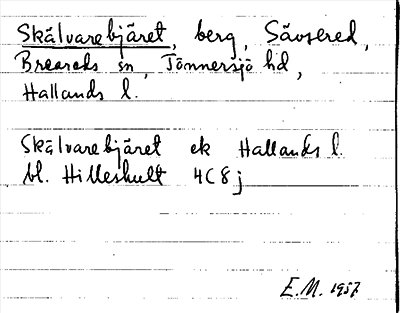 Skälvarebjäret, berg, Sävsered,
Breareds sn, Tönnersjö hd,
Hallands l.
Skälvarebjäret ek Hallands l.
bl. Hilleshult 4C8j
E.M. 1957